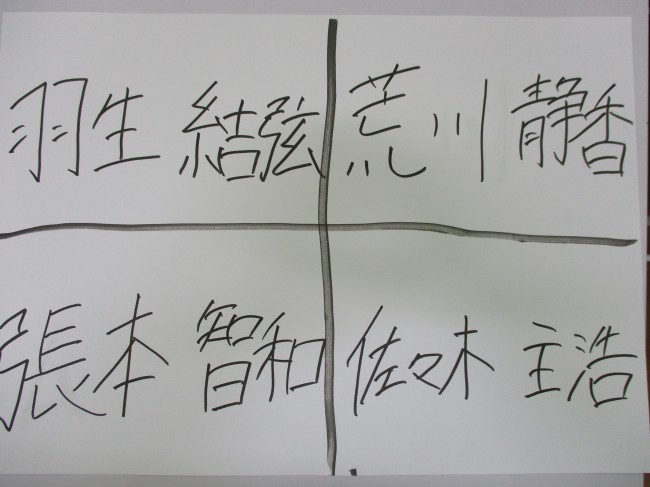 羽生 結弦
荒川 静香
張本 智和
佐々木 主浩